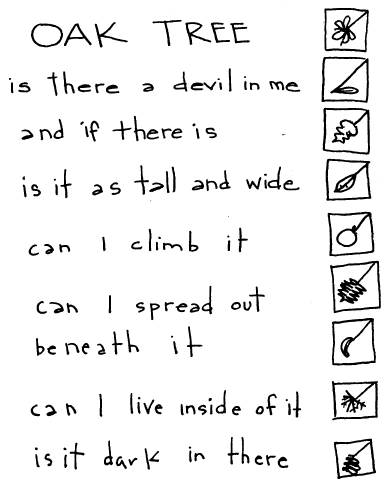 OAK TREE
is there a devil in me
and if there is
is it as tall and wide
can I climb it
can I spread out
beneath it
can I live inside of it
is it dark in there